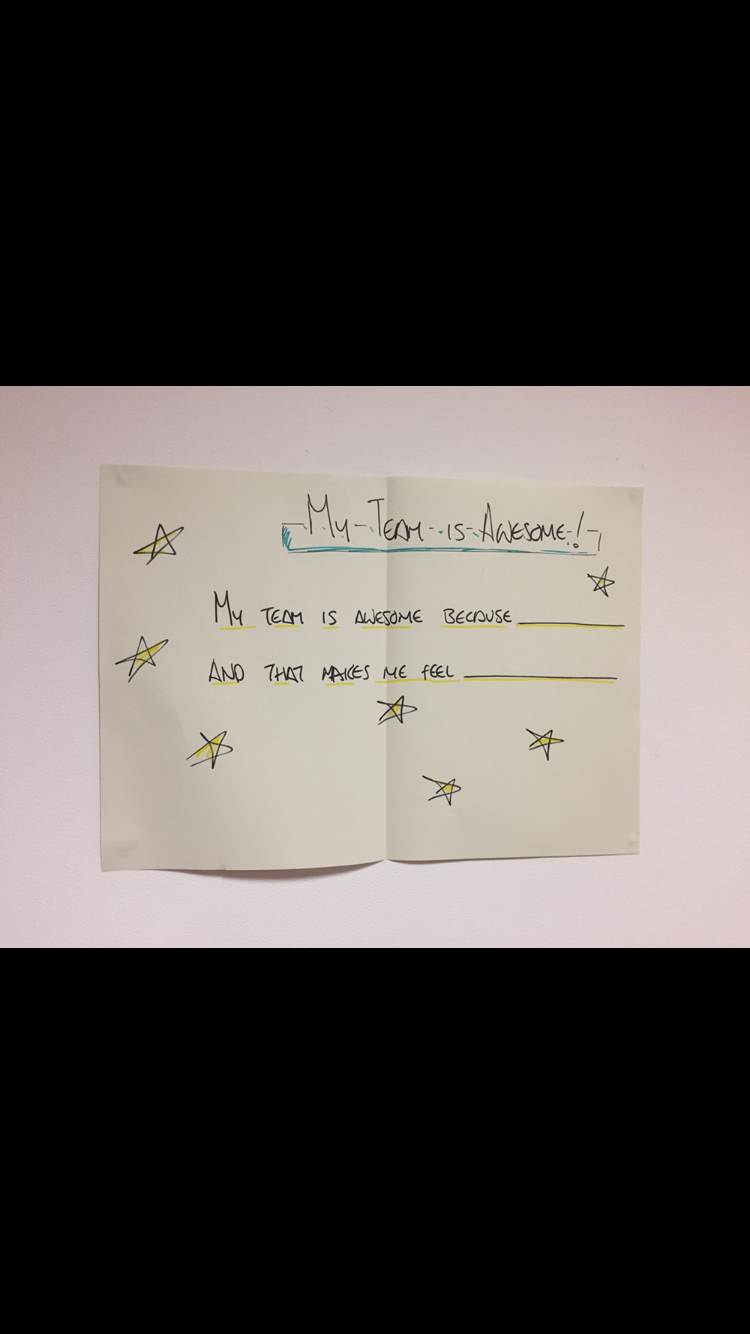 My Team is Awesome!
My TEAM IS AWESOME BECAUSE __________
AND THAT MAKES ME FEEL __________